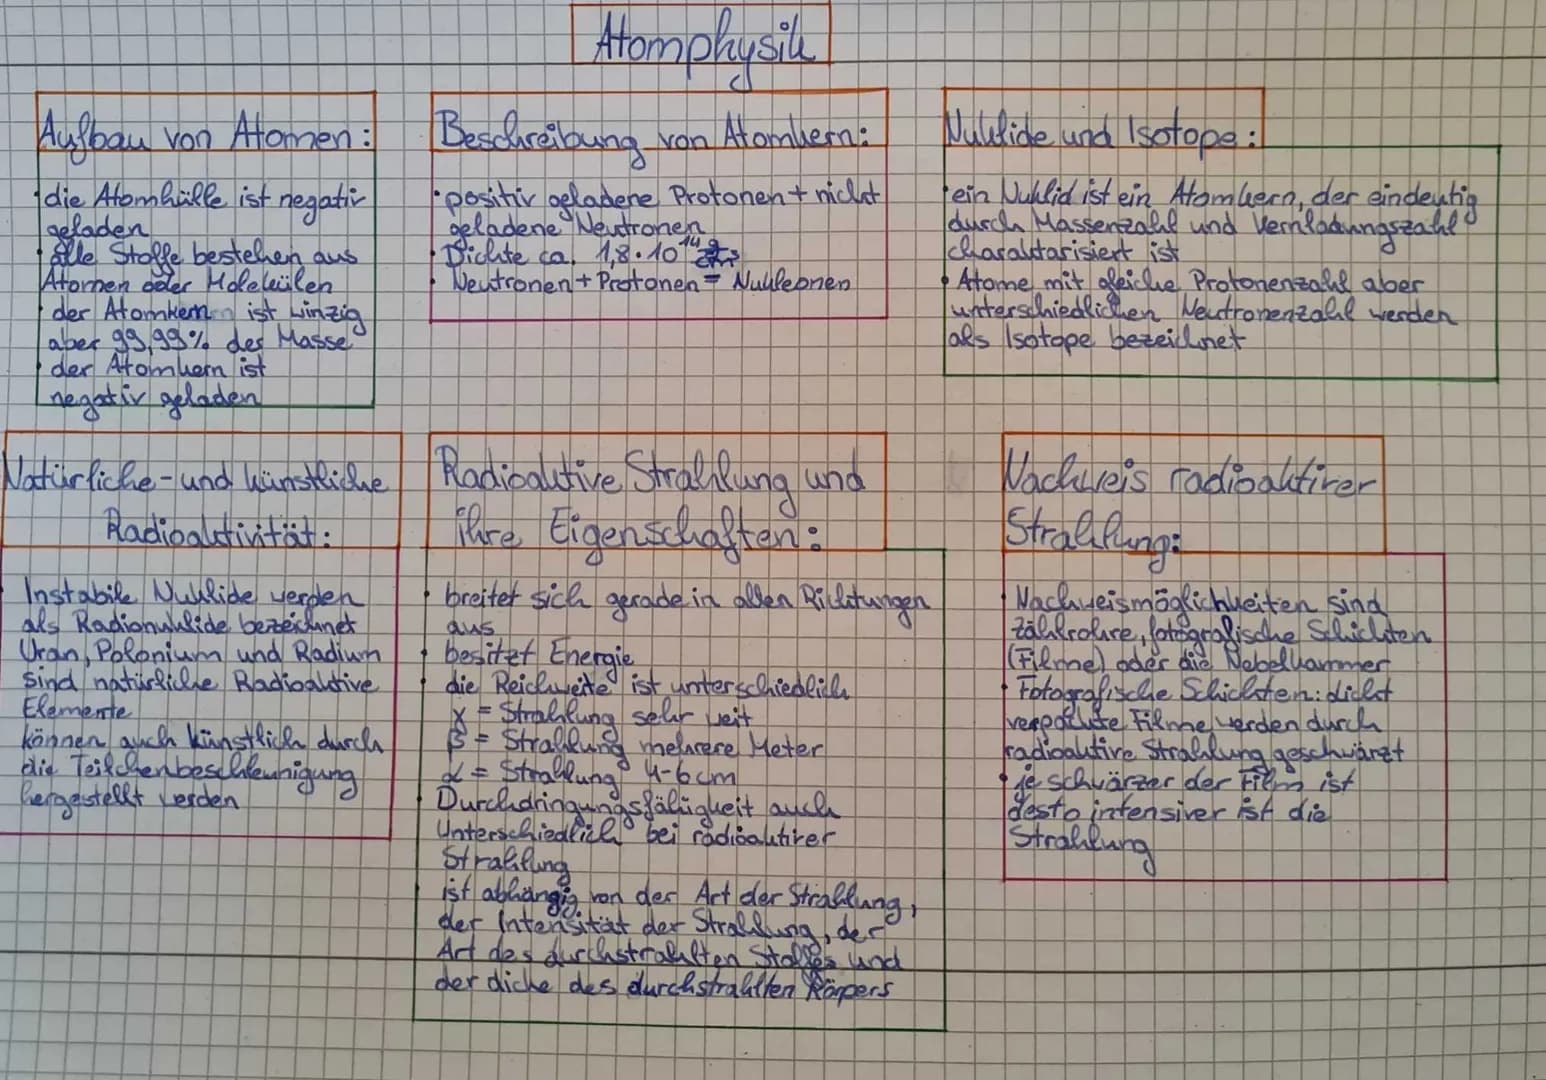 Atomphysik
Aufbau von Atomen:
• die Atomhülle ist negativ
geladen
• alle Stoffe bestehen aus
Atomen oder Moleküllen
• der Atomkern ist winzig
aber 99,99% der Masse
• der Atomkern ist
negativ geladen
Beschreibung von Atomkern:
• positiv geladene Protonen + nicht
geladene Neutronen
• Dichte ca. 1,8·10¹⁴
• Neutronen + Protonen = Nukleonen
Nuklide und Isotope:
• ein Nuklid ist ein Atomkern, der eindeutig
durch Massenzahl und Kernladungszahl
charaktarisiert ist
• Atome mit gleiche Protonenzahl aber
unterschiedlichen Neutronenzahl werden
als Isotope bezeichnet
Natürliche- und künstliche
Radioaktivität:
Instabile Nuklide werden
als Radionuklide bezeichnet
Uran, Polonium und Radium
sind natürliche Radioaktive
Elemente
können auch künstlich durch
die Teilchenbeschleunigung
hergestellt werden
Radioaktive Strahlung und
ihre Eigenschaften:
• breitet sich gerade in allen Richtungen
aus
• besitzt Energie
• die Reichweite ist unterschiedlich
γ = Strahlung sehr weit
β = Strahlung mehrere Meter
α = Strahlung 4-6cm
• Durchdringungsfähigkeit auch
Unterschiedlich bei radioaktiver
Strahlung
ist abhängig von der Art der Strahlung,
der Intensität der Strahlung, der
Art des durchstrahlten Stoffes und
der dicke des durchstrahlten Körpers
Nachweis radioaktiver
Strahlung:
• Nachweismöglichkeiten sind
Zählrohre, fotografische Schichten
(Filme) oder die Nebelkammer
• Fotografische Schichten: dicht
verpackte Filme werden durch
radioaktive Strahlung geschwärzt
• je schwärzer der Film ist
desto intensiver ist die
Strahlung